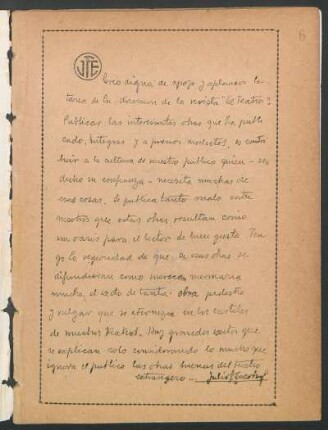 6
JTE
Creo digna de apoyo y aplausos la
tarea de la direccion de la revista "El Teatro":
Publicar las interesantes obras que ha publi
cado, íntegras y a precios modestos, es contri
buir a la cultura de nuestro público quien – sea
dicho en confianza – necesita muchas de
esas cosas. Se publica tanto malo entre
nosotros que estas obras resultan como
un oasis para el lector de buen gusto. Ten
go la seguridad de que, si esas obras se
difundieran como merecen mermaria
mucho, el éxito de tanta obra pedestre
y vulgar que se en los carteles
de nuestros teatros. Hay grandes exitos que
se explican solo considerando lo mucho que
ignora el público las obras buenas del teatro
extranjero –. Julio F. Escobar